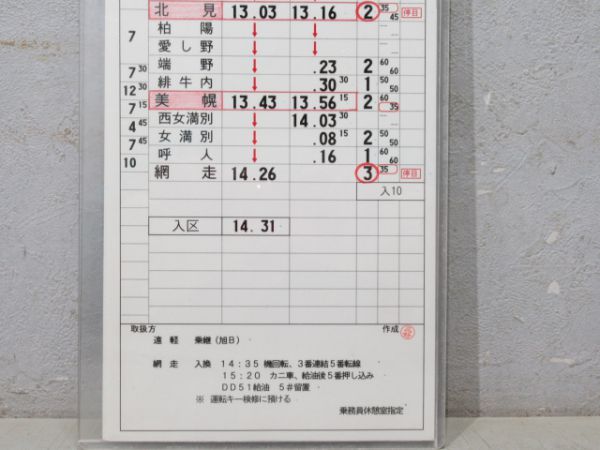 北見 13.03 13.16 ② 35 45 停目
7
柏陽 ↓ ↓
愛し野 ↓ ↓
端野 ↓ .23 2 60 60
7 30
緋牛内 ↓ .30 30 1 50 50
12 30
美幌 13.43 13.56 15 2 60 35
7 15
西女満別 ↓ 14.03 30
4 45
女満別 ↓ .08 15 2 50 50
7 45
呼人 ↓ .16 1 60 60
10
網走 14.26 ③ 35 停目
入10
入区 14.31
取扱方 作成
遠軽 乗継(旭B)
網走 入換 14:35 機回転、3番連結5番転線
15:20 カニ車、給油後5番押し込み
DD51給油 5#留置
※ 運転キー検修に預ける
乗務員休憩室指定